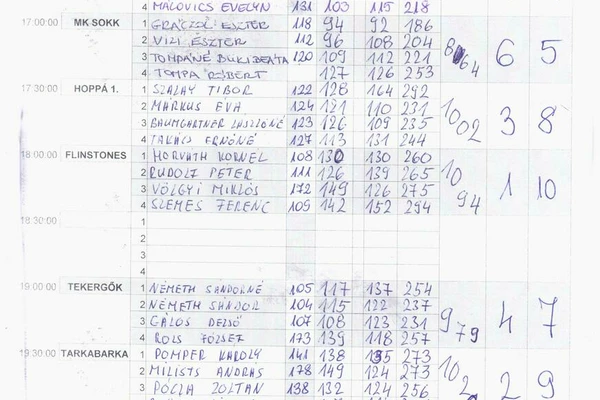 4 MALOVICS EVELYN 131 103 115 218
17:00:00 MK SOKK 1 GRÁCZOL ESZTER 118 94 92 186
2 VIZI ESZTER 112 96 108 204
3 120 109 112 221 864 6 5
4 TOMPA RÓBERT 127 126 253
17:30:00 HOPPÁ 1. 1 SZALAY TIBOR 122 128 164 292
2 MÁRKUS ÉVA 124 121 110 231
3 BAUMGARTNER LÁSZLÓNÉ 123 126 109 235 1002 3 8
4 TAKÁCS ERNŐNÉ 127 113 131 244
18:00:00 FLINSTONES 1 HORVÁTH KORNÉL 108 130 130 260
2 RUDOLF PÉTER 111 126 139 265
3 VÖLGYI MIKLÓS 172 149 126 275 1094 1 10
4 SZEMES FERENC 109 142 152 294
18:30:00 1
2
3
4
19:00:00 TEKERGŐK 1 NÉMETH SÁNDORNÉ 105 117 137 254
2 NÉMETH SÁNDOR 104 115 122 237
3 GÁLOS DEZSŐ 107 108 123 231 979 4 7
4 173 139 118 257
19:30:00 TARKABARKA 1 POMPER KÁROLY 141 138 135 273
2 MILISITS ANDRÁS 178 149 124 273
3 PÓCZA ZOLTÁN 138 132 124 256 102 2 9